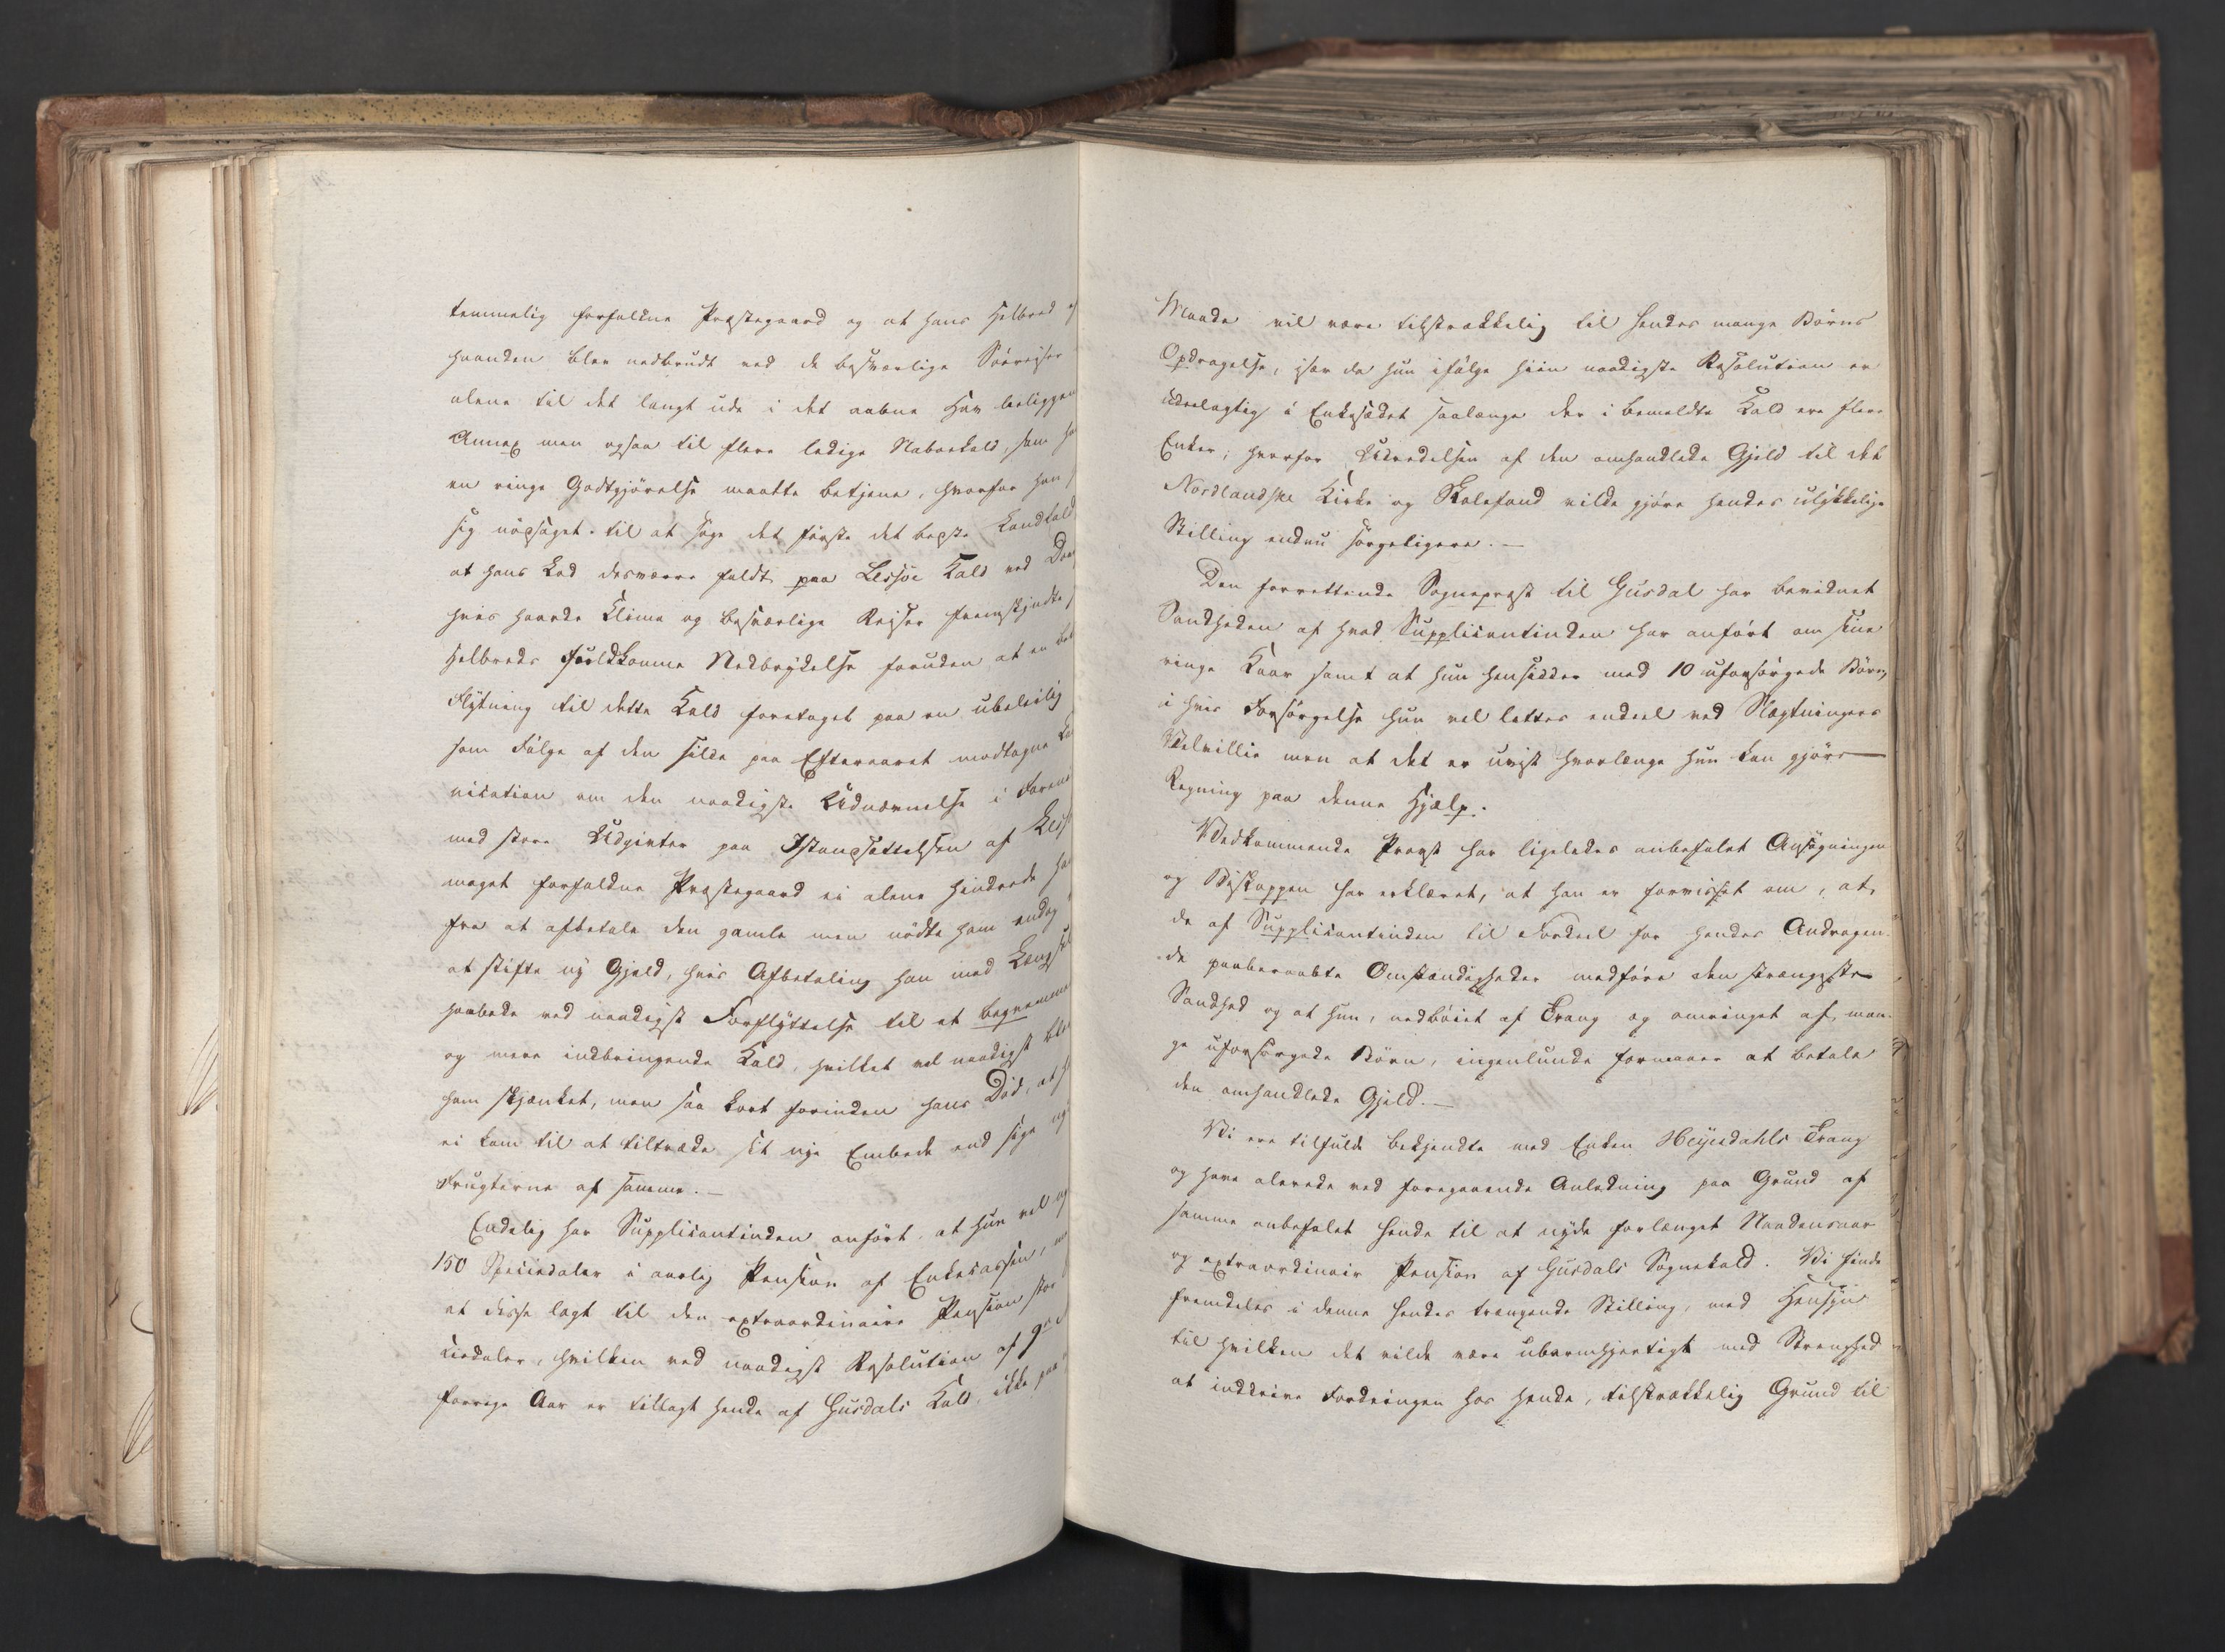 temmelig forfaldne Præstegaard og at hans Helbred
haanden blev nedbrudt ved de besværlige Søereiser
alene til det langt ude i det aabne Hav beliggen
Annex men ogsaa til flere ledige Nabokald, som
en ringe Godtgjørelse maatte betjene, hvorfor han
sig nødsaget til at søge det første det bedste Landkald
at hans Lod desværre faldt paa Lessøe Kald ved
hvis haarde Clima og besværlige Reiser fremskyndte
Helbreds fuldkomne Nedbrydelse foruden at en
Flytning til dette Kald foretaget paa en ubeleilig
som Følge af den silde paa Efteraaret modtagne
nication om den naadigste Udnævnelse i Foren
med store Udgivter paa Istandsættelsen af
meget forfaldne Præstegaard ei alene hindrede
fra at afbetale den gamle men nødte ham endog
at stifte ny Gjeld, hvis Afbetaling han med
haabede ved naadigst Forflyttelse til et beqvemme
og mere indbringende Kald, hvilket vel naadigst blev
ham skjænket, men saa kort forinden hans Død, at
ei kom til at tiltræde sit nye Embede end sige
Frugterne af samme.–
Endelig har Supplicantinden anført, at hun vel
150 Speciedaler i aarlig Pension af Enkecassen,
at disse lagt til den extraordinaire Pension stor
ciedaler, hvilken ved naadigst Resolution af 9de
forrige Aar er tillagt hende af Gusdals Kald, ikke paa
Maade vil være tilstrækkelig til hendes mange Børns
Opdragelse, især da hun ifølge hiin naadigste Resolution er
udeelagtig i Enkesædet saalænge der i bemeldte Kald ere flere
Enker; hvorfor Udredelsen af den omhandlede Gjeld til det
Nordlandske Kirke og Skolefond vilde gjøre hendes ulykkelige
Stilling endnu sørgeligere.–
Den forrettende Sognepræst til Gusdal har bevidnet
Sandheden af hvad Supplicantinden har anført om sine
ringe Kaar samt at hun hensidder med 10 uforsørgede Børn,
i hvis Forsørgelse hun vel lettes endeel ved Slægtningers
Velvillie men at det er uvist hvorlænge hun kan gjøre
Regning paa denne Hjælp.
Vedkommende Provst har ligeledes anbefalet Ansøgningen
og Biskoppen har erklæret, at han er forvisset om, at
de af Supplicantinden til Fordeel for hendes Andragen-
de paaberaabte Omstændigheder medføre den strængeste
Sandhed og at hun, nedbøiet af Trang og omringet af man-
ge uforsørgede Børn, ingenlunde formaaer at betale
den omhandlede Gjeld.–
Vi ere tilfulde bekjendte med Enken Heyerdahls Trang
og have allerede ved foregaaende Anledning paa Grund af
samme anbefalet hende til at nyde forlænget Naadensaar
og extraordinair Pension af Gusdals Sognekald. Vi finde
fremdeles i denne hendes trængende Stilling, med Hensyn
til hvilken det vilde være ubarmhjertigt med Strenghed
at inddrive Fordringen hos hende, tilstrækkelig Grund til